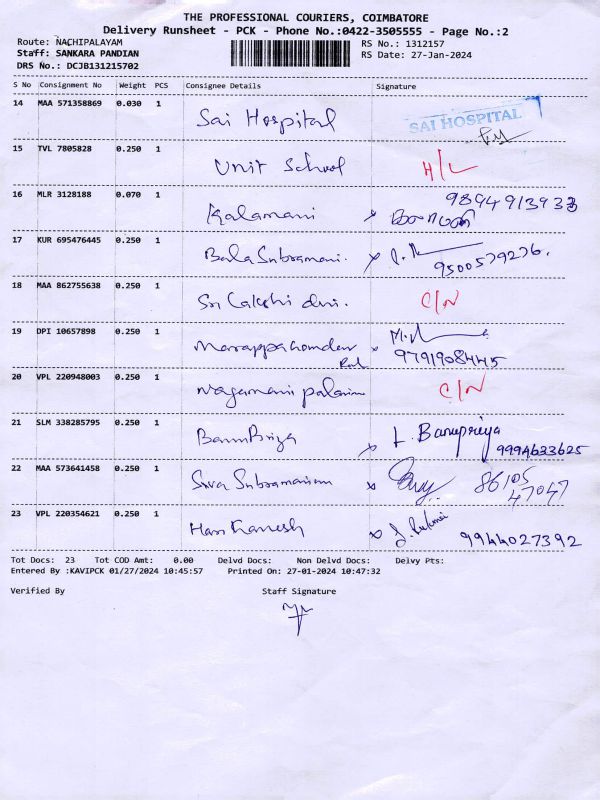 THE PROFESSIONAL COURIERS, COIMBATORE
Delivery Runsheet - PCK - Phone No.:0422-3505555 - Page No.:2
Route: NACHIPALAYAM RS No.: 1312157
Staff: SANKARA PANDIAN RS Date: 27-Jan-2024
DRS No.: DCJB131215702
S No Consignment No Weight PCS Consignee Details Signature
14 MAA 571358869 0.030 1 Sai Hospital SAI HOSPITAL
15 TVL 7805828 0.250 1 Unit School H/L
16 MLR 3128188 0.070 1 Kalamani 9894913933
17 KUR 695476445 0.250 1 Bala Subramani. 9500579276.
18 MAA 862755638 0.250 1 Sri Lakshi devi. C/N
19 DPI 10657898 0.250 1 9791908445
20 VPL 220948003 0.250 1 Nagamani C/N
21 SLM 338285795 0.250 1 BanuPriya L. Banupriya 9994633625
22 MAA 573641458 0.250 1 Siva Subramanium 86105
47047
23 VPL 220354621 0.250 1 9944027392
Tot Docs: 23 Tot COD Amt: 0.00 Delvd Docs: Non Delvd Docs: Delvy Pts:
Entered By :KAVIPCK 01/27/2024 10:45:57 Printed On: 27-01-2024 10:47:32
Verified By Staff Signature